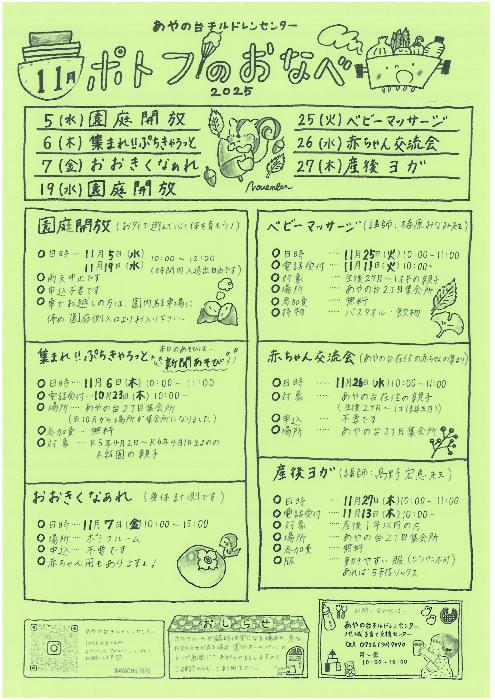 あやの台チルドレンセンター
11月 ポトフのおなべ
2025
5(水) 園庭開放
6(木) 集まれ!!ぷちきゃろっと
7(金) おおきくなぁれ
19(水) 園庭開放
25(火) ベビーマッサージ
26(水) 赤ちゃん交流会
27(木) 産後ヨガ
November
園庭開放 (お外で遊んで心と体を育もう!)
日時…11月5日(水) 10:00~12:00
11月19日(水) (時間内入退出自由です)
雨天中止です
申込不要です
車でお越しの方は、園内駐車場に
停め園庭側入口よりお入り下さい。
集まれ!!ぷちきゃろっと 本日のあそびは… 新聞あそび
日時…11月6日(木) 10:00~11:00
電話受付…10月23日(木) 10:00~
場所…あやの台2丁目集会所
(※10月から場所が集会所になりました)
参加費…無料
対象…R5年4月2日~R6年4月1日生まれの
未就園の親子
おおきくなぁれ (身体計測です)
日時…11月7日(金) 10:00~15:00
場所…ポトフルーム
申込…不要です
赤ちゃん用もありますよ!
ベビーマッサージ
日時…11月25日(火) 10:00~11:00
電話受付…11月11日(火) 10:00~
対象…生後2ケ月~1才の親子
場所…あやの台2丁目集会所
参加費…無料
持物…バスタオル・飲物
赤ちゃん交流会 (あやの台在住の赤ちゃんの集まり)
日時…11月26日(水) 10:00~11:00
対象…あやの台在住の親子
申込…不要です
場所…あやの台2丁目集会所
産後ヨガ
日時…11月27日(木) 10:00~11:00
電話受付…11月13日(木) 10:00~
対象…産後1年以内の方
場所…あやの台2丁目集会所
参加費…無料
服…動きやすい服 (ジーパン不可)
あれば5本指ソックス
あやの台チルドレンセンター
Instagram
おしらせ
お問い合わせは…
あやの台チルドレンセンター
地域子育て支援センター
月~金
10:00~15:00